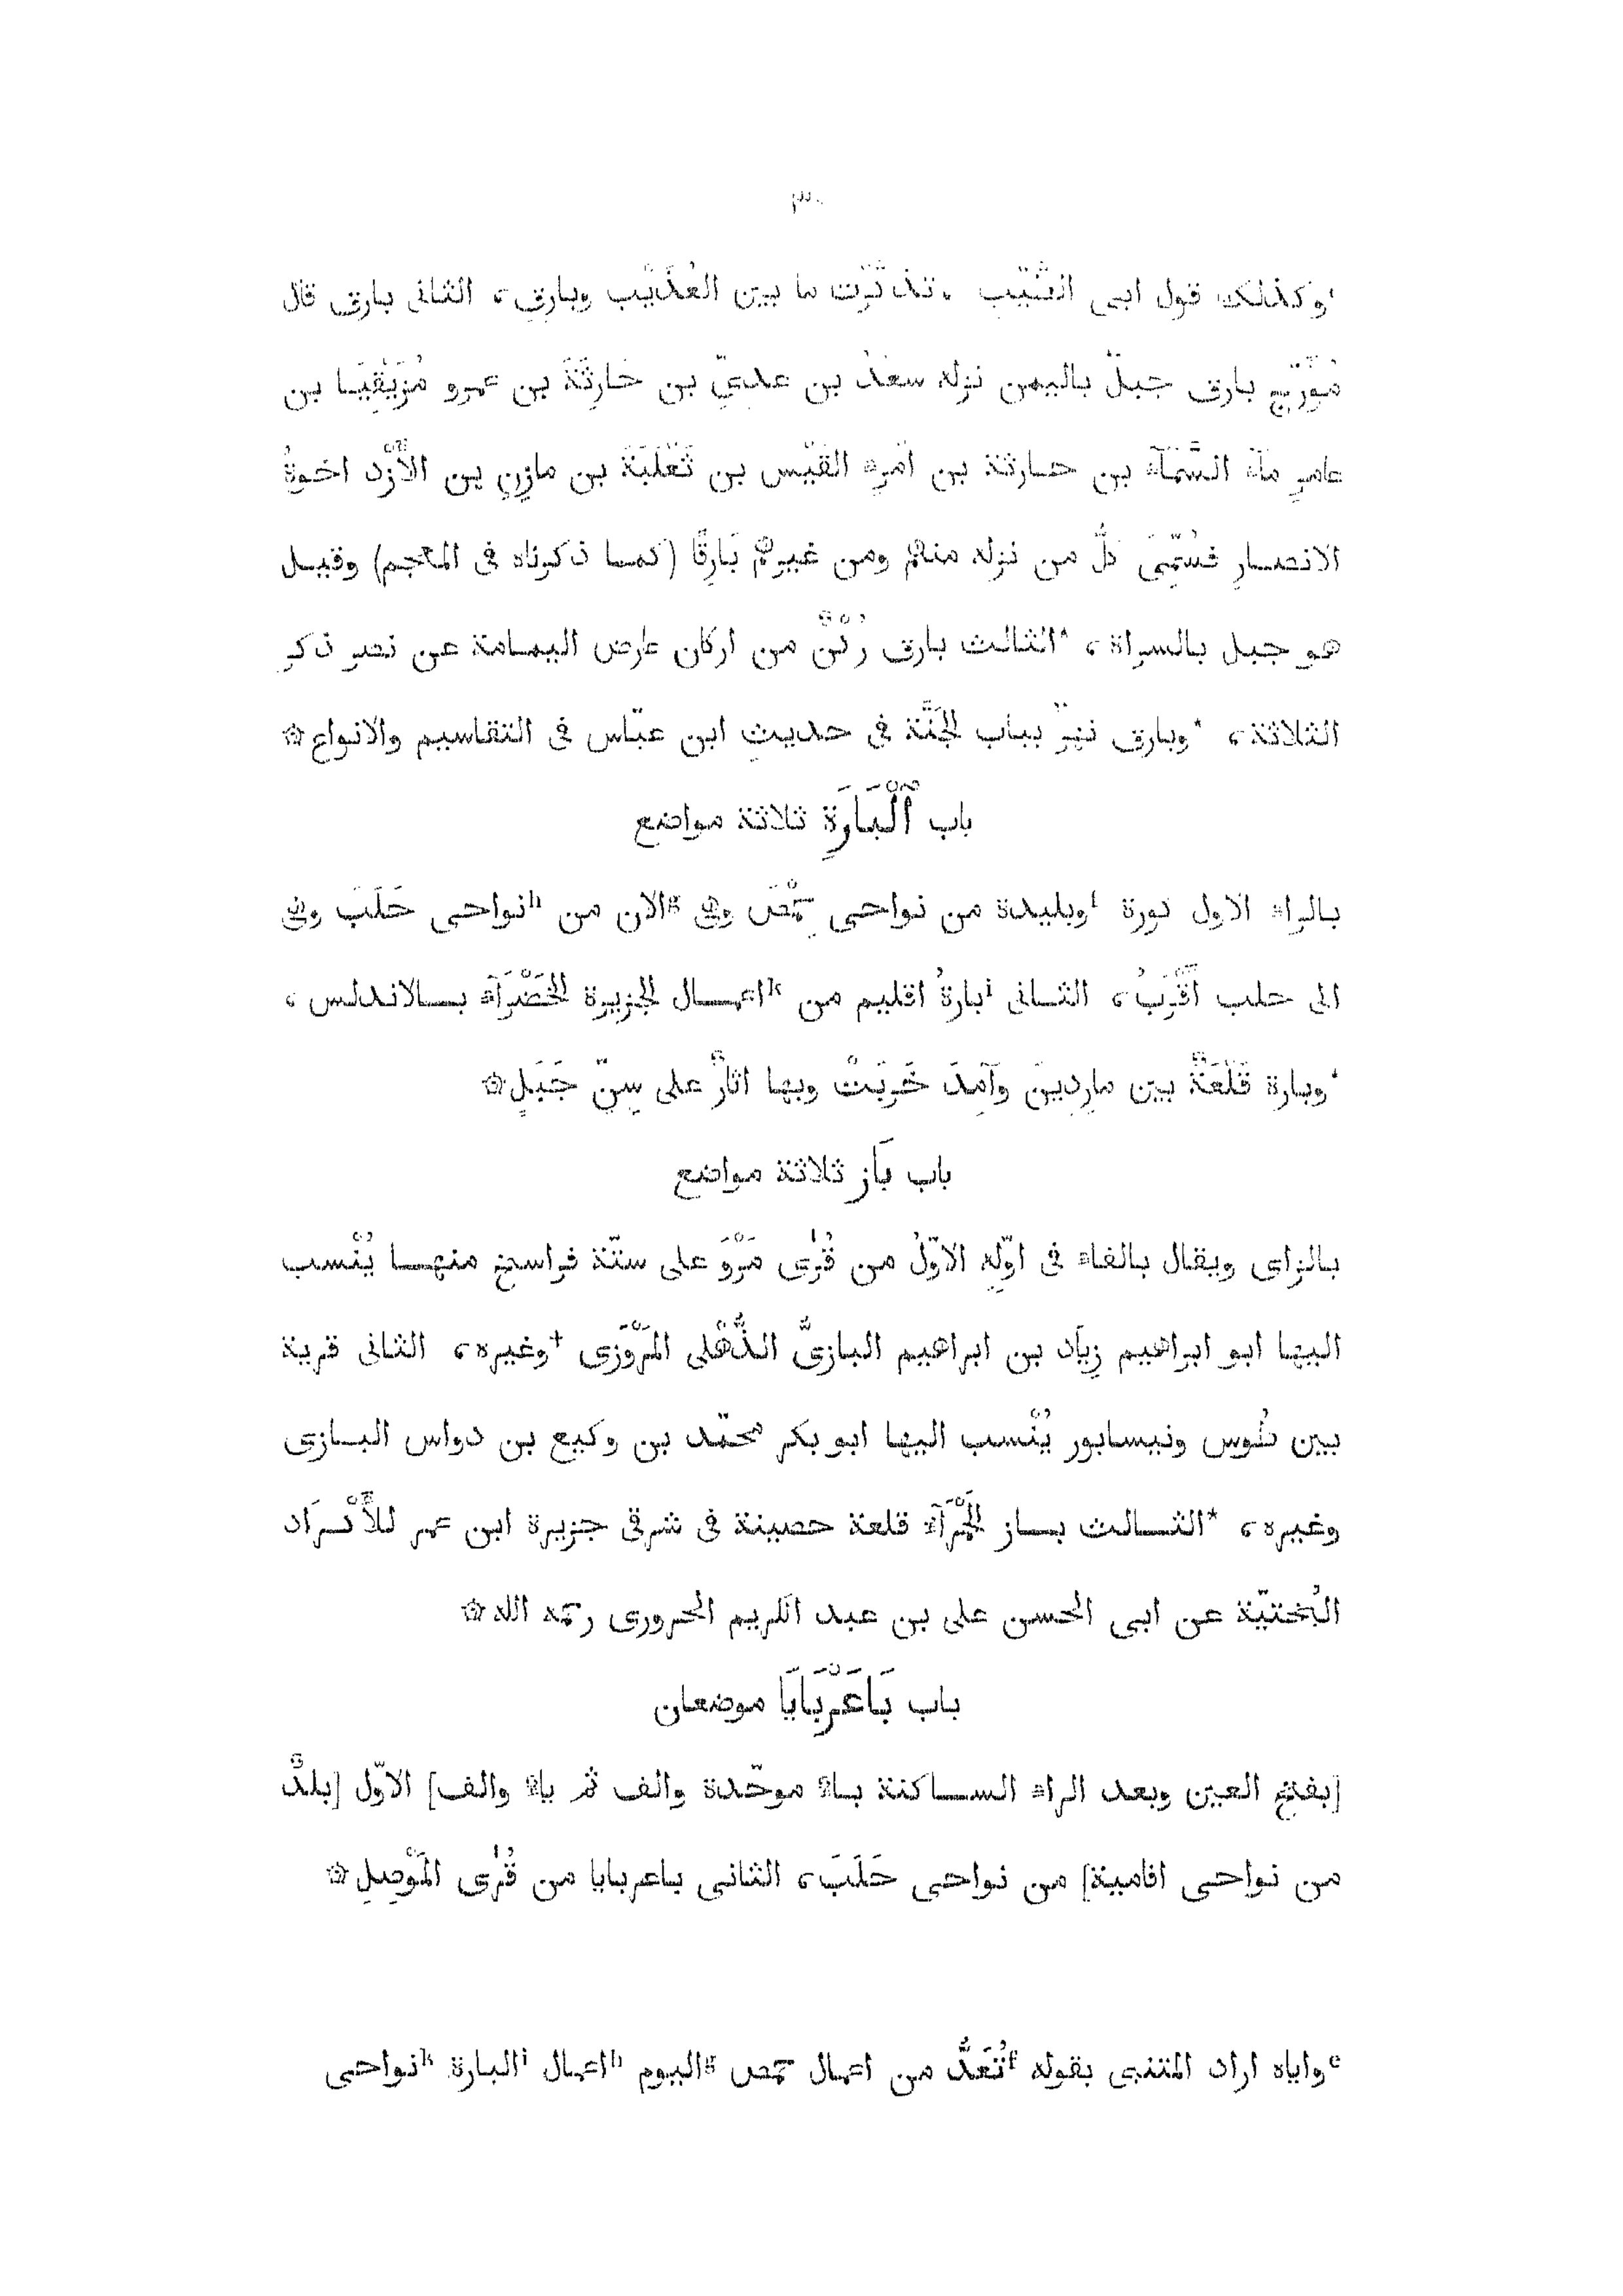 ٣٠
وكذلك قول ابى الطَّيّب تذكّرت ما بين العُذَيْب وبارق، الثانى بارق قال
مُوَرّج بارق جبلٌ باليمن نزله سعْدُ بن عدىّ بن حَارِثَةَ بن عمرو مُزَيْقِيَا بن
عامرٍ مآء السَّمَآء بن حارثة بن امْرِء القَيْس بن ثَعْلَبَةَ بن مازِنِ بن الأَزْد اخوةُ
الانصارِ فسُمِّىَ كلُّ من نزله منهم ومن غيرهم بَارِقًا (كما ذكرناه فى المعجم) وقيل
هو جبل بالسراة، *الثالث بارق رُكْنٌ من اركان عارض اليمامة عن نصر ذكر
الثلاثة، *وبارق نهرٌ بباب الجَنَّة فى حديث ابن عبّاس فى التقاسيم والانواع۞
باب ٱلْبَارَةِ ثلاثة مواضع
بالراء الاول كورة fوبليدة من نواحى حِمْصَ وهى gالان من hنواحى حَلَبَ وهى
الى حلب أَقْرَبُ، الثانى iبارةُ اقليم من kاعمال الجزيرة الخَضْرَآء بالاندلس،
*وبارة قَلْعَةٌ بين ماردينَ وآمِدَ خَرِبَتْ وبها اثارٌ على سِنّ جَبَلٍ۞
باب بَاز ثلاثة مواضع
بالزاى ويقال بالفاء فى اوّلِهِ الاوّلُ من قُرَى مَرْوَ على ستّة فراسخ منها يُنْسب
اليها ابو ابراهيم زِيَاد بن ابراهيم البازىُّ الذُّهْلى المَرْوَزى †وغيره، الثانى قرية
بين طُوس ونيسابور يُنْسب اليها ابو بكر محمّد بن وكيع بن دواس البازى
وغيره، *الثالث باز الحَمْرَآء قلعة حصينة فى شرقى جزيرة ابن عمر للأَكْرَاد
البُخْتيّة عن ابى الحسن على بن عبد الكريم الجزورى رحمه الله۞
باب بَاعَرْبَايَا موضعان
[بفتح العين وبعد الراء الساكنة باء موحّدة والف ثم ياء والف] الاوّل [بلدٌ
من نواحى افامية] من نواحى حَلَبَ، الثانى باعربايا من قُرَى المَوْصِلِ۞
eواياه اراد المتنبى بقوله fتُعَدُّ من اعمال حمص gاليوم hاعمال iالبارة kنواحى